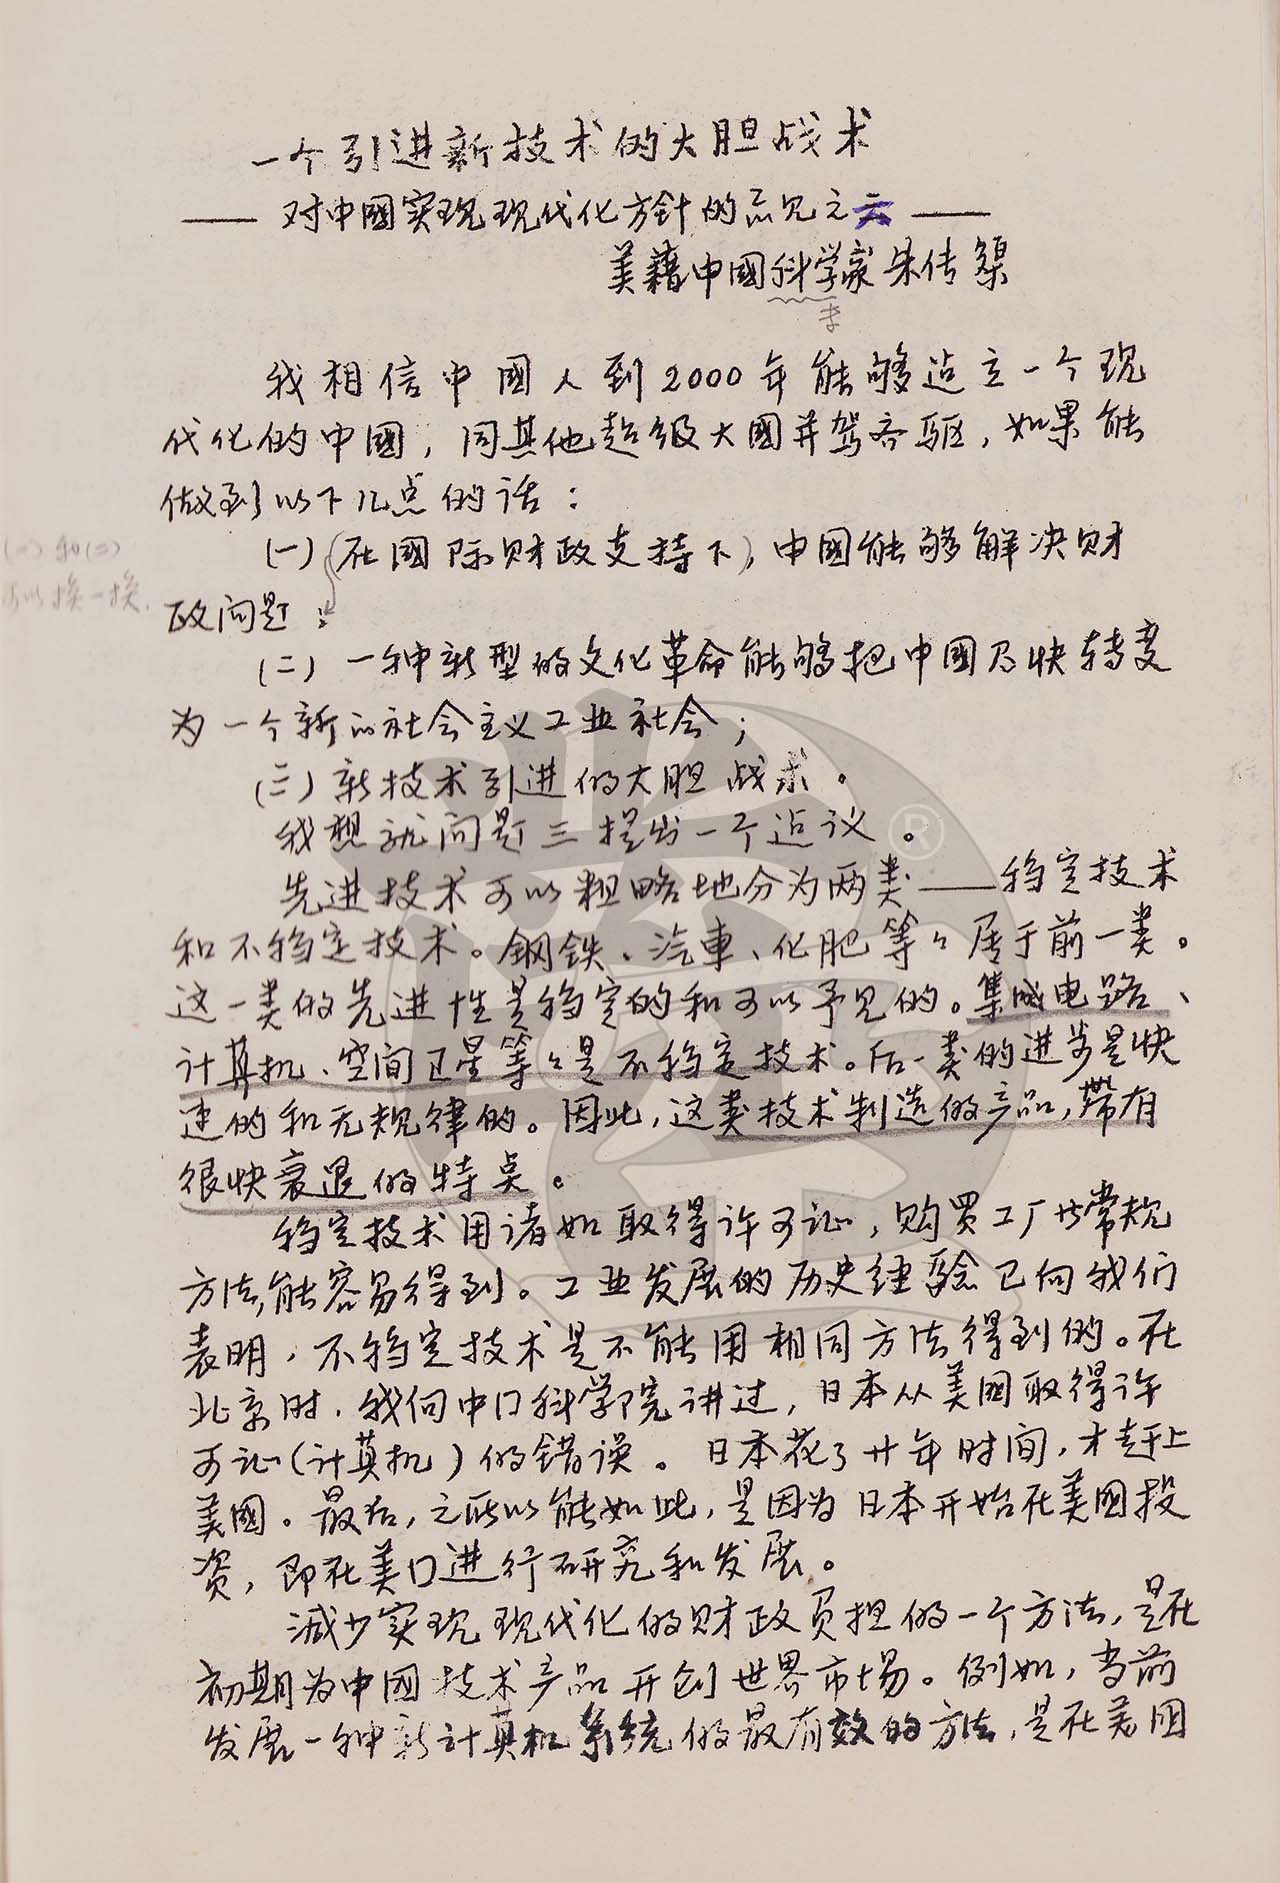 一个引进新技术的大胆战术
——对中國实现现代化方針的意见之二——
美藉中國科学家朱传榘
李
我相信中國人到2000年能够造立一个现
代化的中國，同其他超级大國并驾齐驱，如果能
做到以下几点的话：
(一)(在國际财政支持下)，中國能够解决财
政问题；
(二)和(三)
可以换一换.
(二)一种新型的文化革命能够把中國乃快转变
为一个新的社会主义工业社会；
(三)新技术引进的大胆战术。
我想就问题三提出一个迠议。
®
先进技术可以粗略地分为两类——稳定技术
和不稳定技术。钢铁、汽車、化肥等々属于前一类。
这一类的先进性是稳定的和可以予见的。集成电路、
计算机、空间卫星等々是不稳定技术。后一类的进步是快
速的和无规律的。因此，这类技术制造的产品，带有
很快衰退的特点。
稳定技术用诸如取得许可证，购买工厂共常规
方法，能容易得到。工业发展的历史经验已向我们
表明，不稳定技术是不能用相同方法得到的。在
北京时，我向中囗科学院讲过，日本从美國取得许
可证(计算机)的错误。日本花了廿年时间，才赶上
美國。最后，之所以能如此，是因为日本开始在美國投
资，即在美囗进行研究和发展。
减少实现现代化的财政负担的一个方法，是在
初期为中國技术产品开创世界市场。例如，当前
发展一种新计算机系统的最有效的方法，是在美國